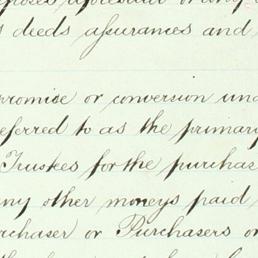 deeds assurances and
promise or conversion und
eferred to as the primary
Trustees for the purchas
ny other moneys paid
rchaser or Purchasers or